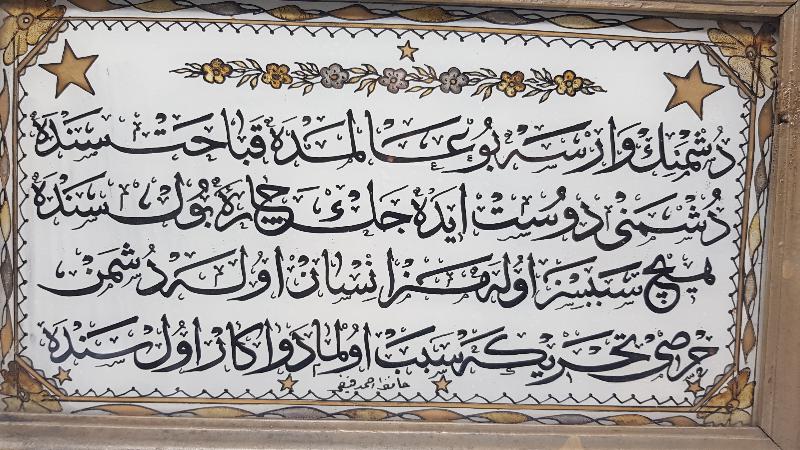 دشمنك وارسه بو عالمده قباحت سنده
دشمنی دوست ایده جك چاره بول سنده
هیچ سببسز اوله مز انسان اوله دشمن
حرصی تحریكه سبب اولما دواكار اول سنده